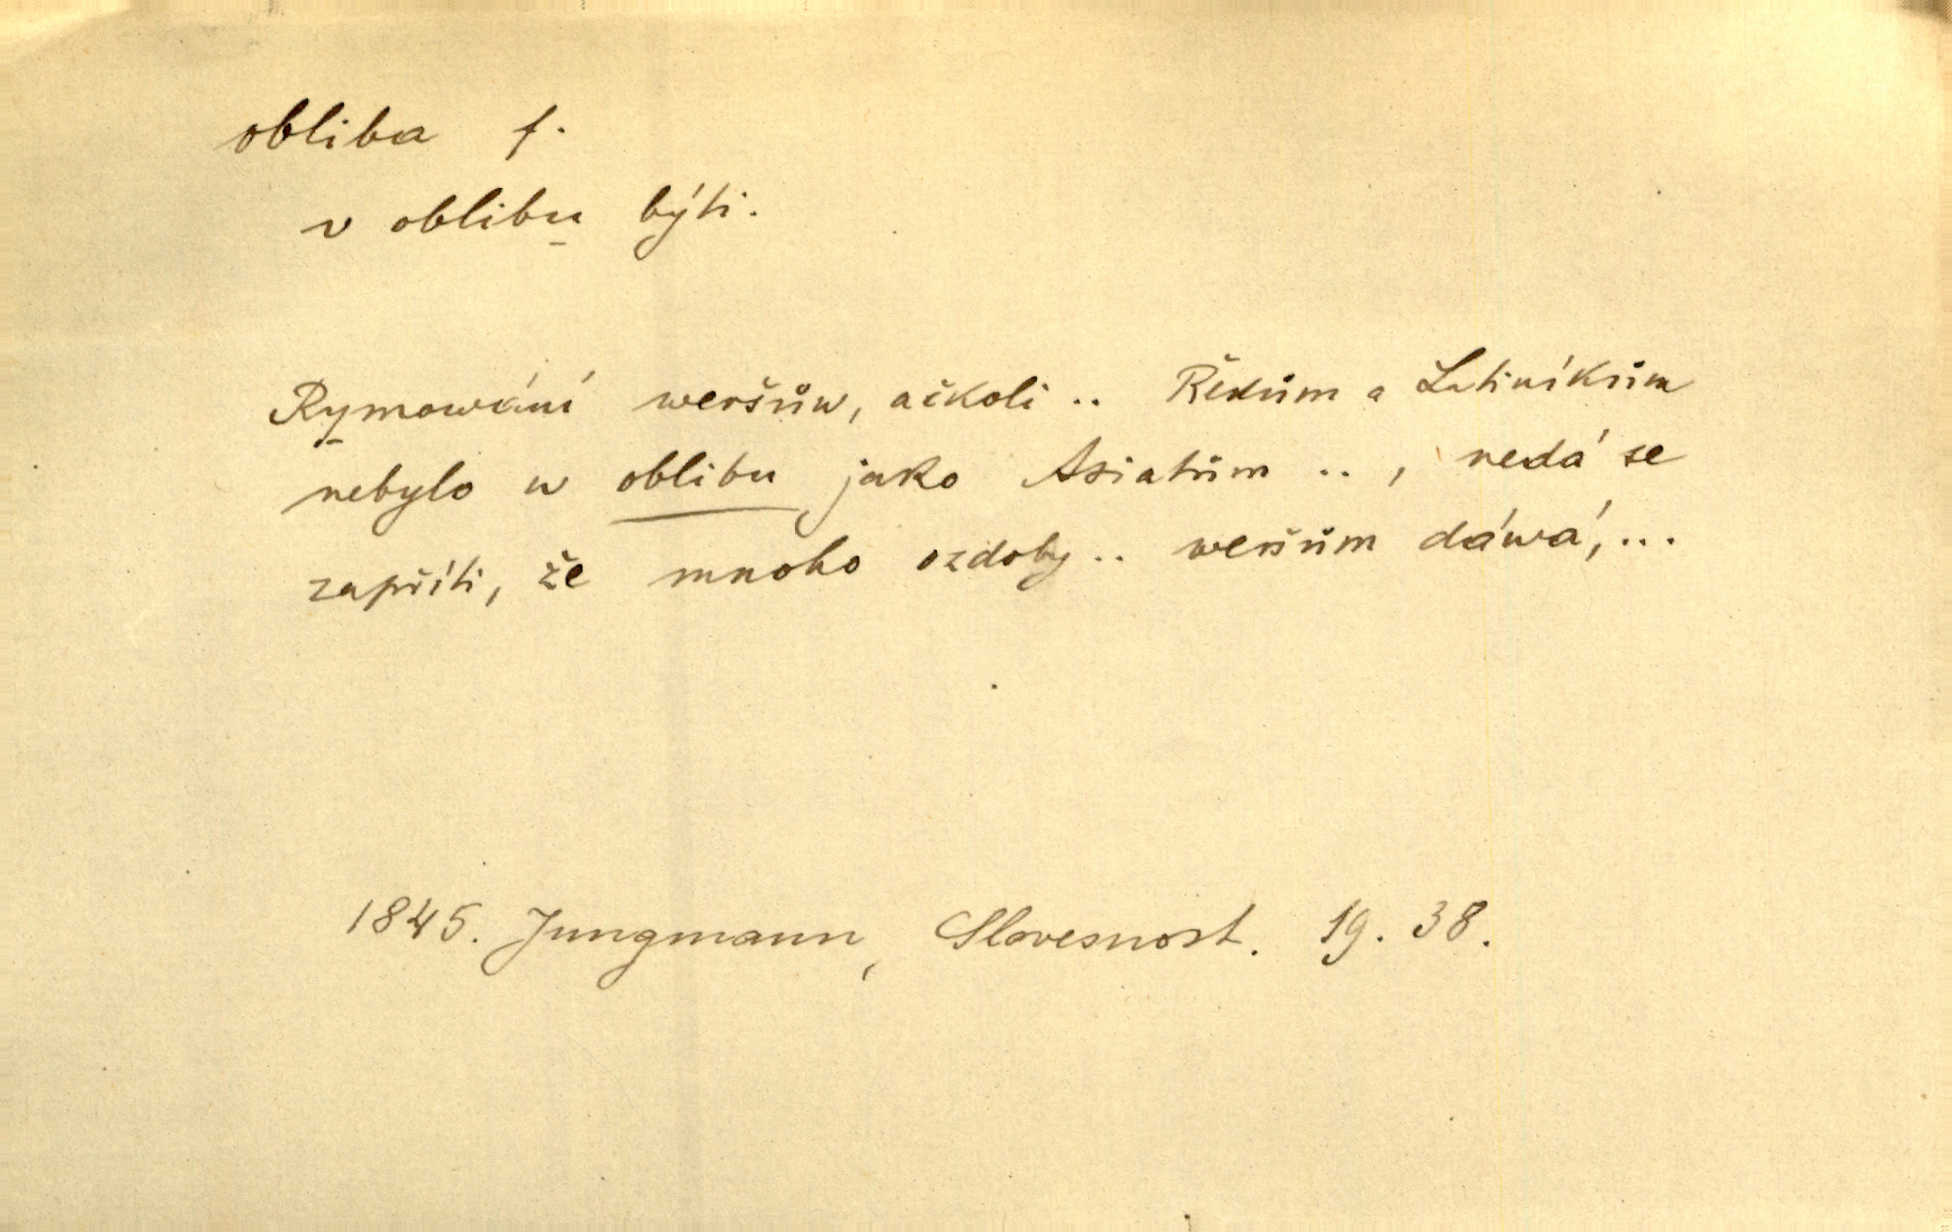 obliba f.
v oblibu býti.
Rymowání weršůw, ačkoli .. Řekům a Latiníkům
nebylo w oblibu jako Asiatům .., nedá se
zapříti, že mnoho ozdoby .. weršům dáwá, ...
1845. Jungmann, Slovesnost. 19. 38.